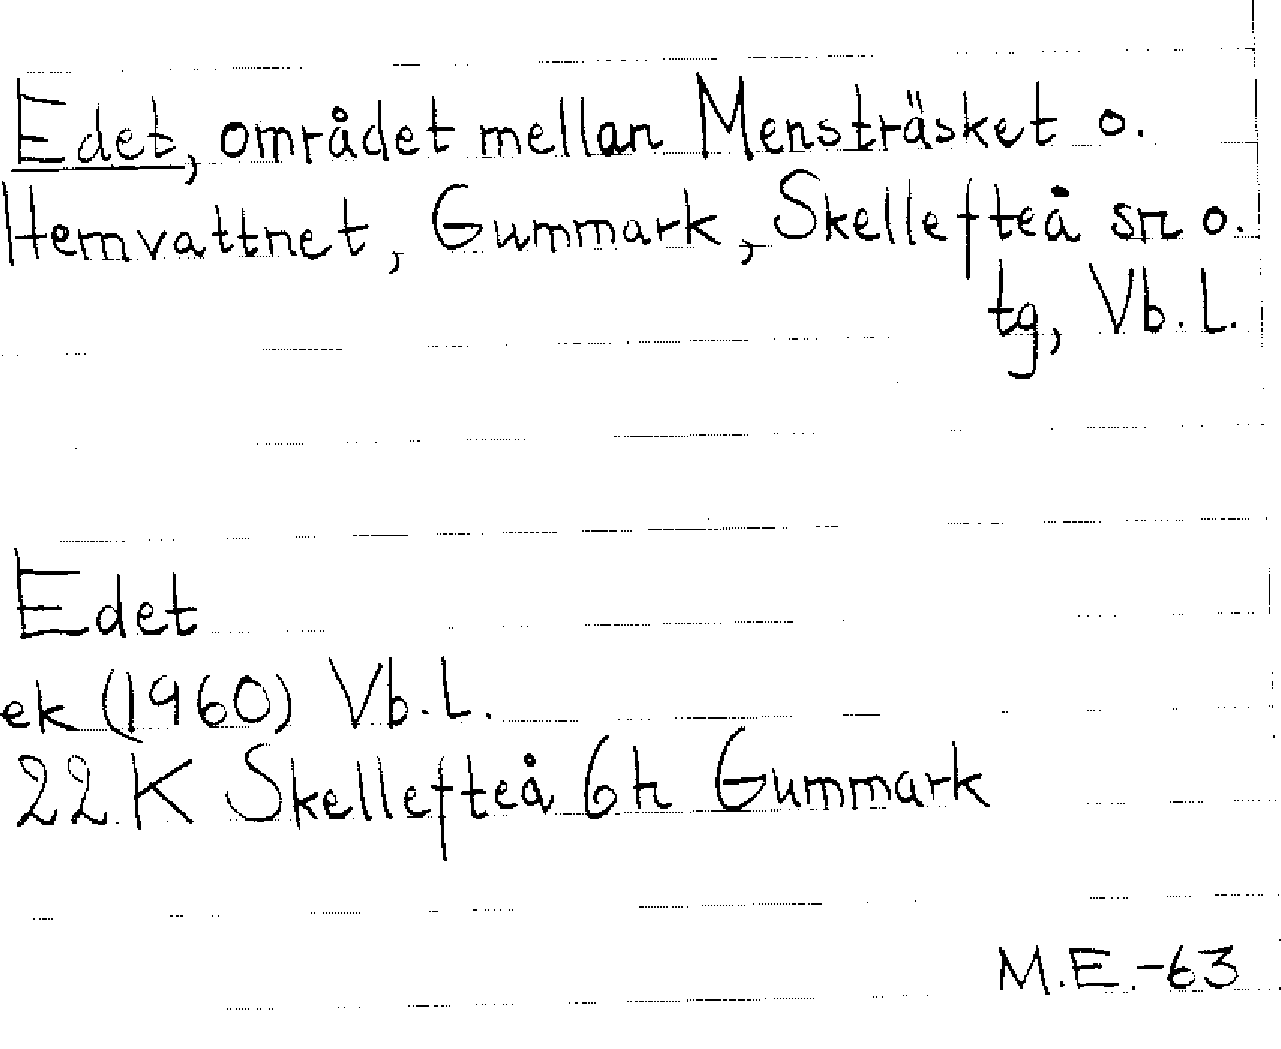 Edet, området mellan Mensträsket o.
Hemvattnet, Gummark, Skellefteå sn o.
tg, Vb. L.
Edet
ek (1960) Vb. L.
22 K Skellefteå 6h Gummark
M.E.-63